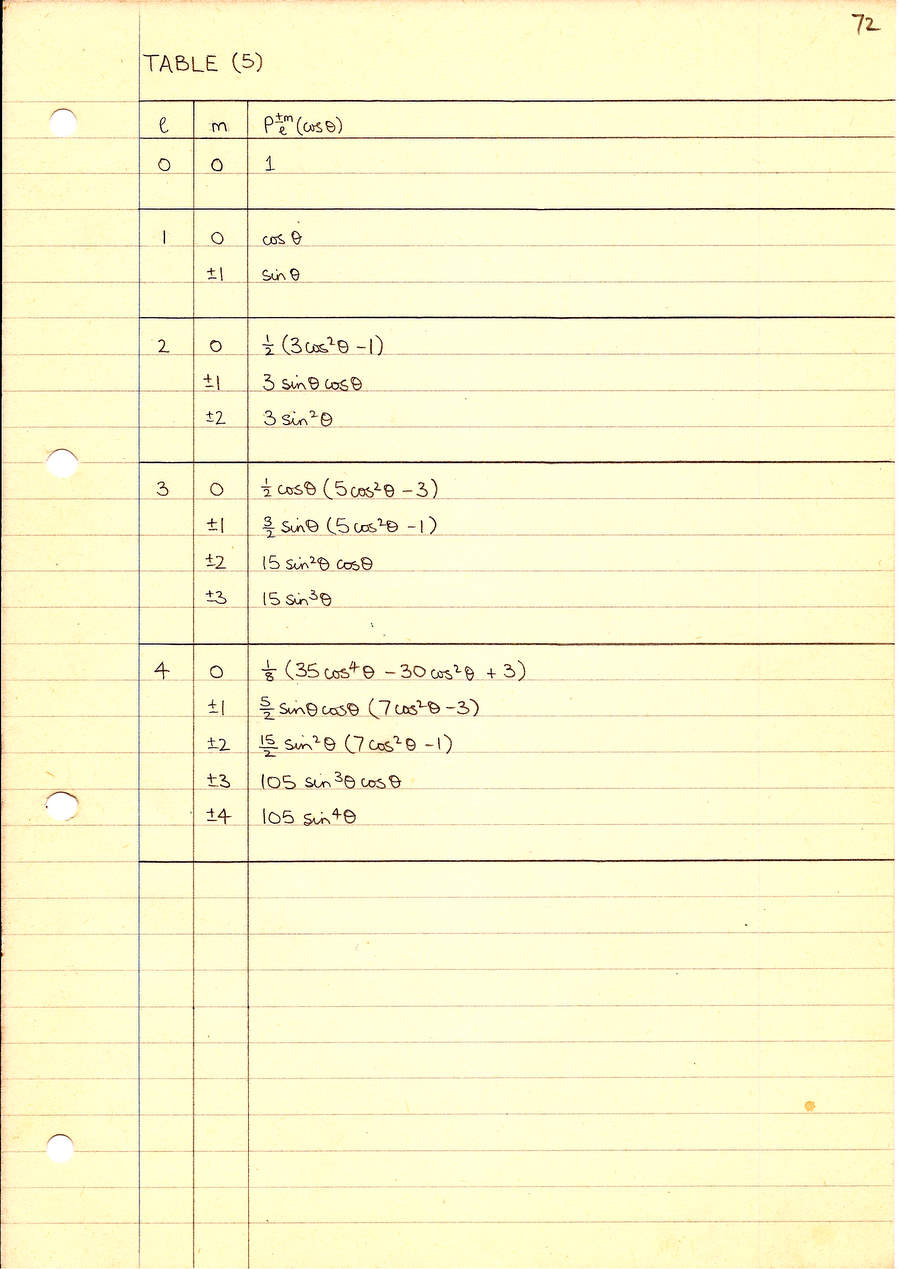 72
TABLE (5)
ℓ m P^±m_ℓ (cosθ)
0 0 1
1 0 cos θ
±1 sin θ
2 0 ½ (3cos²θ - 1)
±1 3 sinθ cosθ
±2 3 sin²θ
3 0 ½ cosθ (5cos²θ - 3)
±1 3/2 sinθ (5cos²θ - 1)
±2 15 sin²θ cosθ
±3 15 sin³θ
4 0 ⅛ (35cos⁴θ - 30cos²θ + 3)
±1 5/2 sinθ cosθ (7cos²θ - 3)
±2 15/2 sin²θ (7cos²θ - 1)
±3 105 sin³θ cosθ
±4 105 sin⁴θ